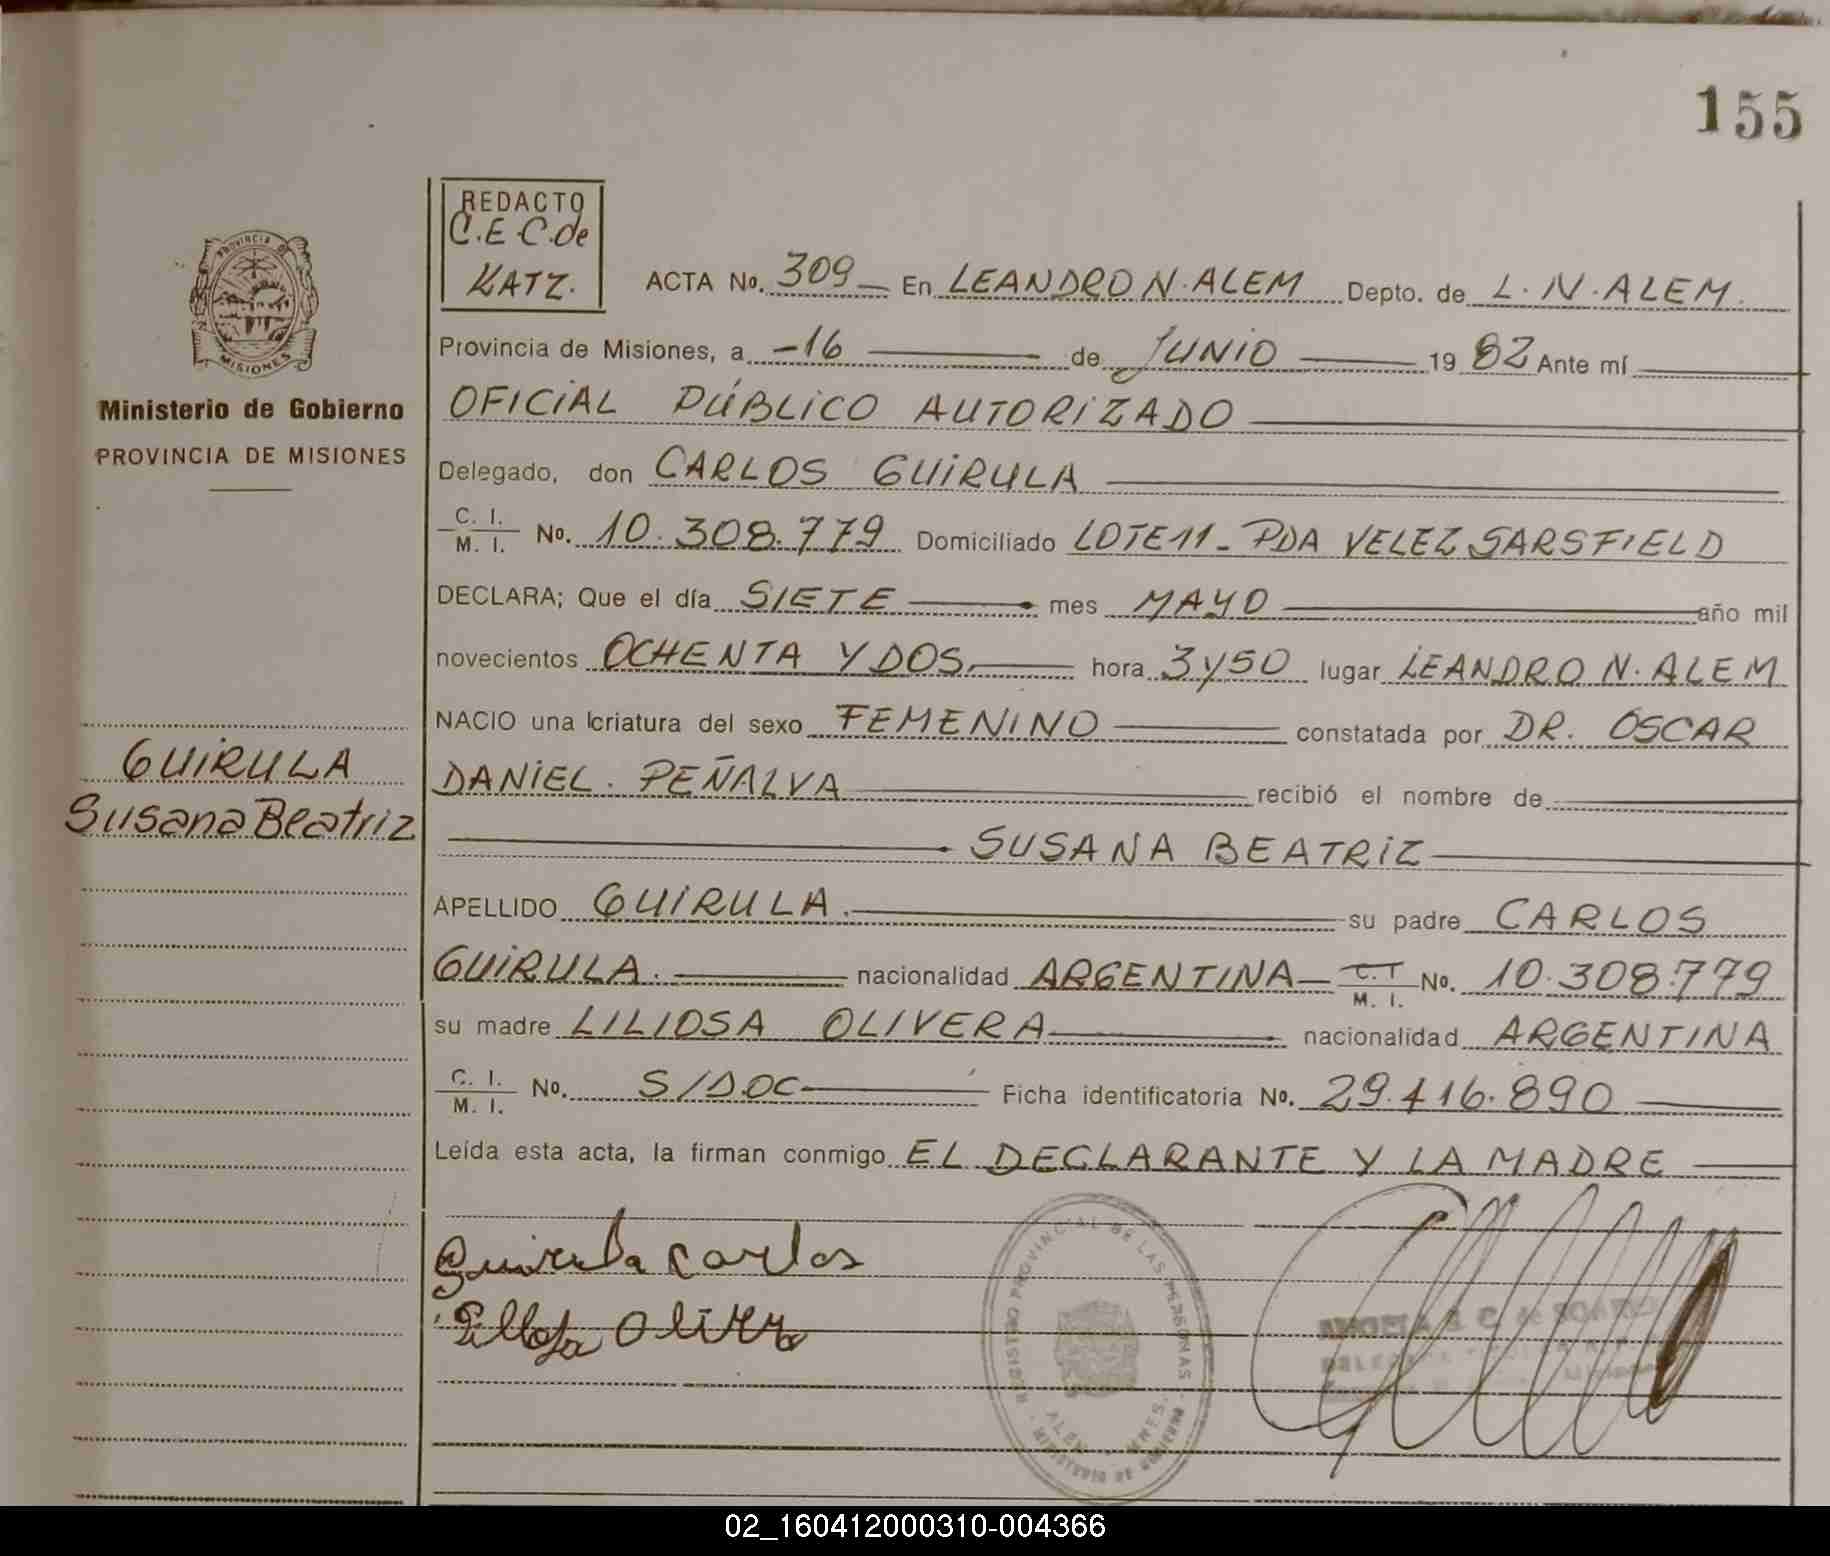 155
REDACTO
C.E.C. de
KATZ.
PROVINCIA DE
MISIONES
Ministerio de Gobierno
PROVINCIA DE MISIONES
ACTA No. 309 En LEANDRO N. ALEM Depto. de L. N. ALEM.
Provincia de Misiones, a -16 de JUNIO 19 82 Ante mí
OFICIAL PÚBLICO AUTORIZADO
Delegado, don CARLOS GUIRULA
C. I. / M. I. No. 10.308.779 Domiciliado LOTE 11 - PDA VELEZ SARSFIELD
DECLARA; Que el día SIETE mes MAYO año mil
novecientos OCHENTA Y DOS. hora 3 y 50 lugar LEANDRO N. ALEM
NACIO una criatura del sexo FEMENINO constatada por DR. OSCAR
DANIEL. PEÑALVA recibió el nombre de
SUSANA BEATRIZ
GUIRULA
Susana Beatriz
APELLIDO GUIRULA. su padre CARLOS
GUIRULA. nacionalidad ARGENTINA C.I / M. I. No. 10.308.779
su madre LILIOSA OLIVERA nacionalidad ARGENTINA
C. I. / M. I. No. S/DOC Ficha identificatoria No. 29.416.890
Leída esta acta, la firman conmigo EL DECLARANTE Y LA MADRE
Guirula Carlos
Olivera
REGISTRO PROVINCIAL DE LAS PERSONAS
MINISTERIO DE GOBIERNO
ALEM MNES.
02_160412000310-004366